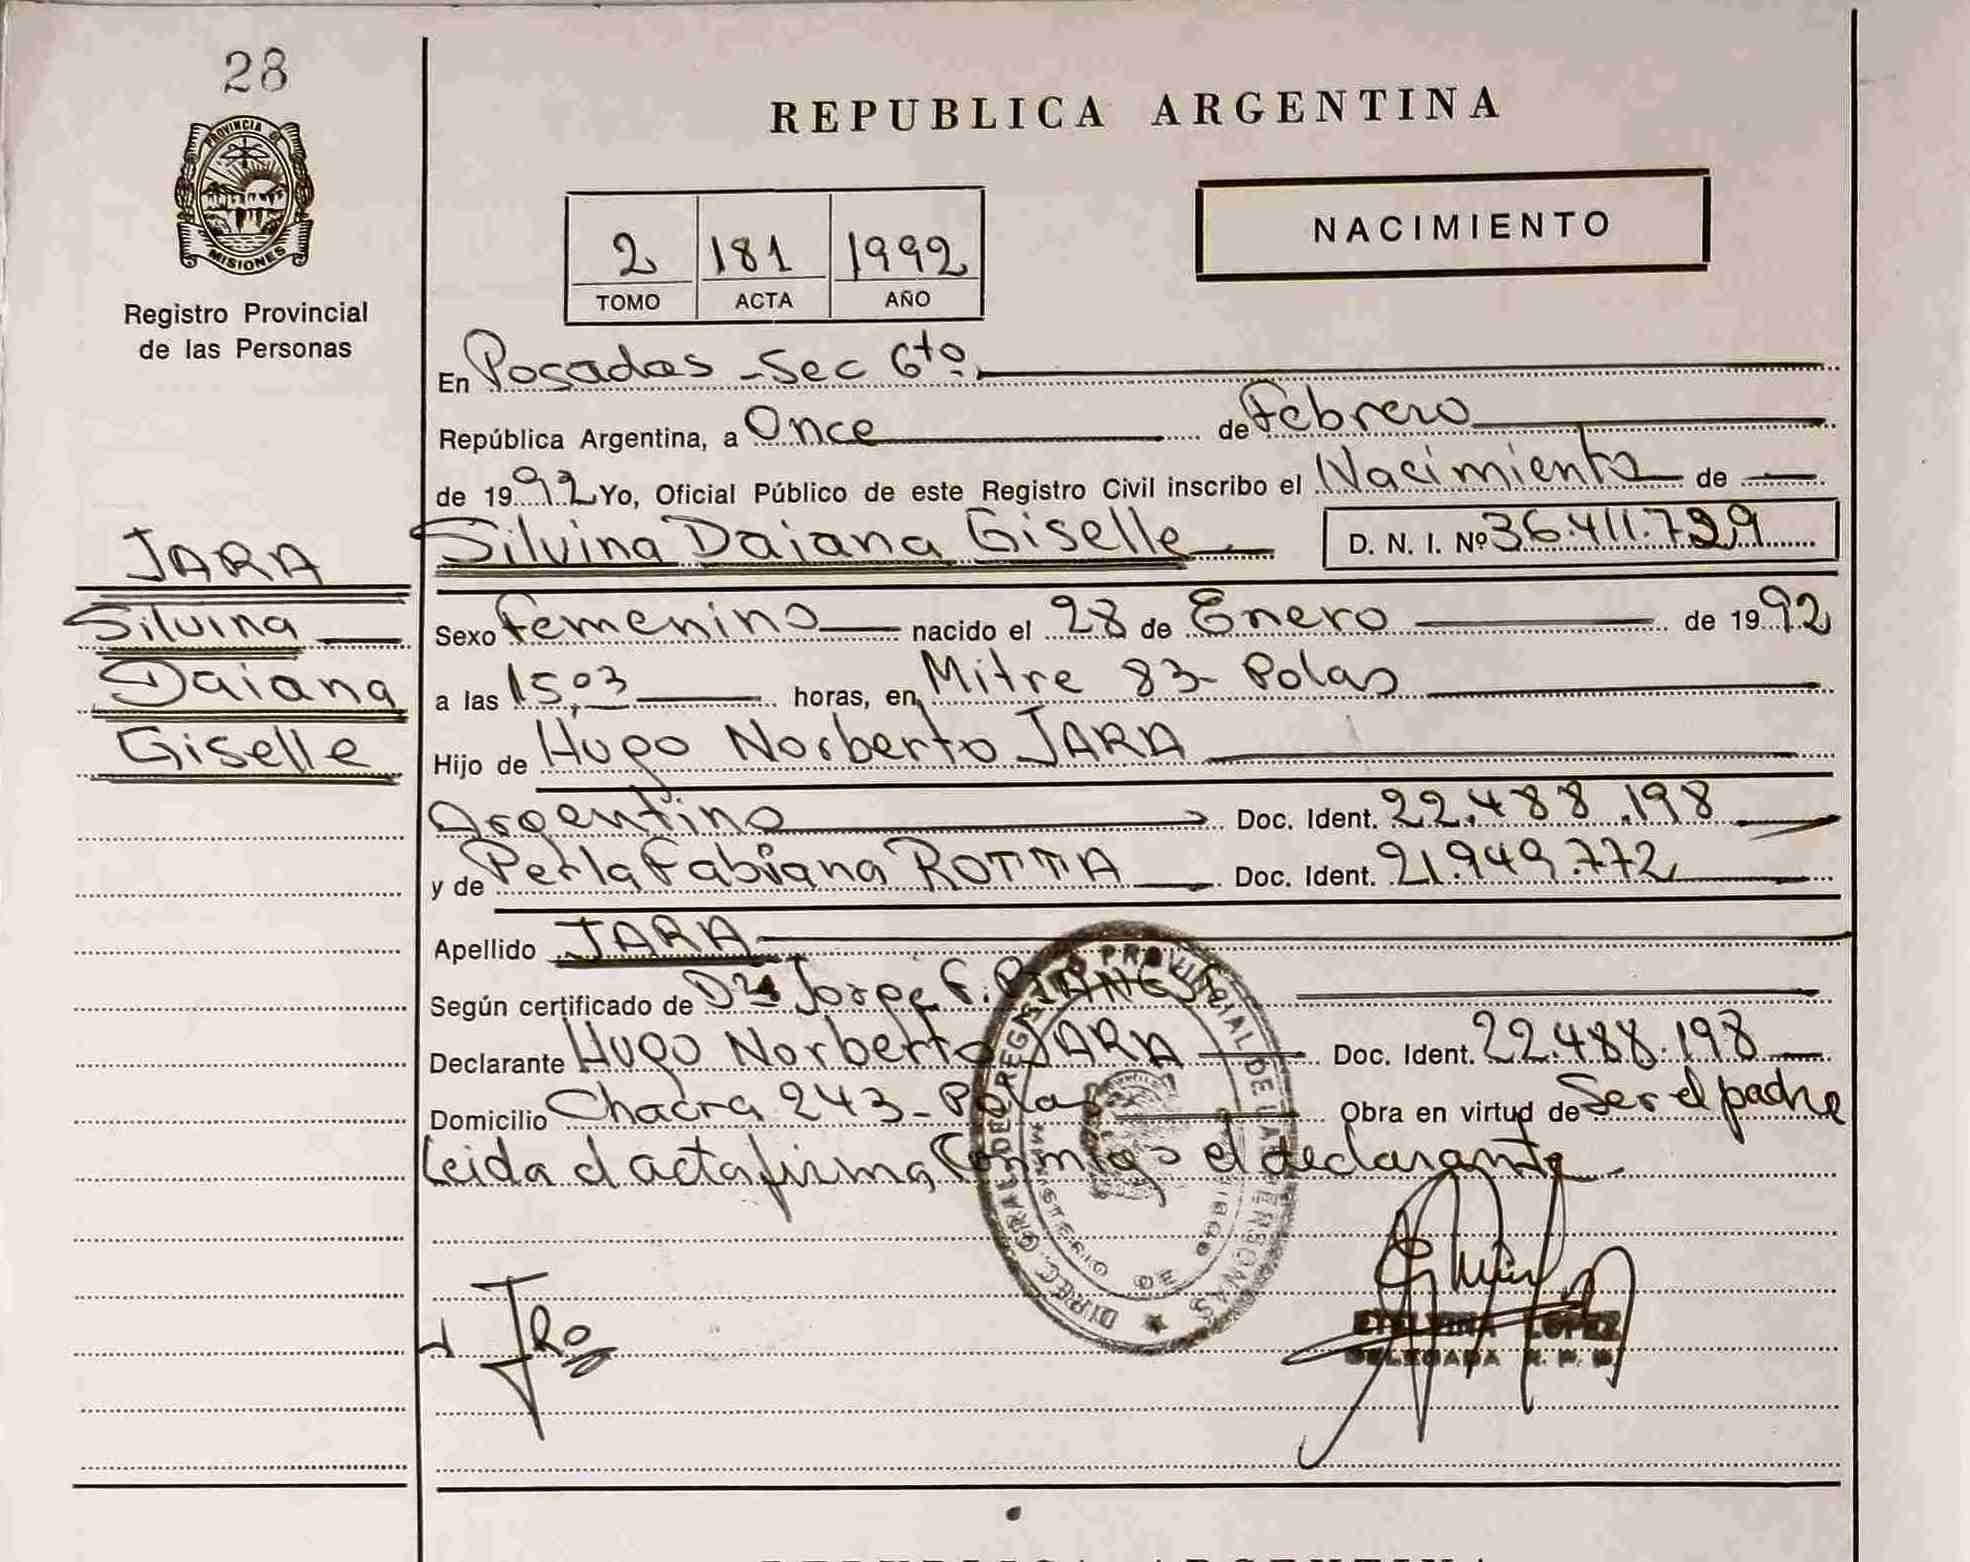 28
PROVINCIA DE
MISIONES
Registro Provincial
de las Personas
REPUBLICA ARGENTINA
NACIMIENTO
2 181 1992
TOMO ACTA AÑO
En Posadas - Sec 6to.
República Argentina, a Once de Febrero
de 1992 Yo, Oficial Público de este Registro Civil inscribo el Nacimiento de
Silvina Daiana Giselle D. N. I. Nº 36.411.729
JARA
Silvina
Daiana
Giselle
Sexo Femenino nacido el 28 de Enero de 1992
a las 15,03 horas, en Mitre 83 - Pdas
Hijo de Hugo Norberto JARA
Argentino Doc. Ident. 22.488.198
y de Perla Fabiana ROTTA Doc. Ident. 21.949.772
Apellido JARA
Según certificado de Dr Jorge F.
Declarante Hugo Norberto JARA Doc. Ident. 22.488.198
Domicilio Chacra 243 - Pdas Obra en virtud de Ser el padre
Leida el acta firma Conmigo el declarante
DIREC. GRAL. DE REGISTRO PROVINCIAL DE LAS PERSONAS
MINISTERIO DE GOBIERNO
ETELVINA LOPEZ
DELEGADA R. P. P.
REPUBLICA ARGENTINA